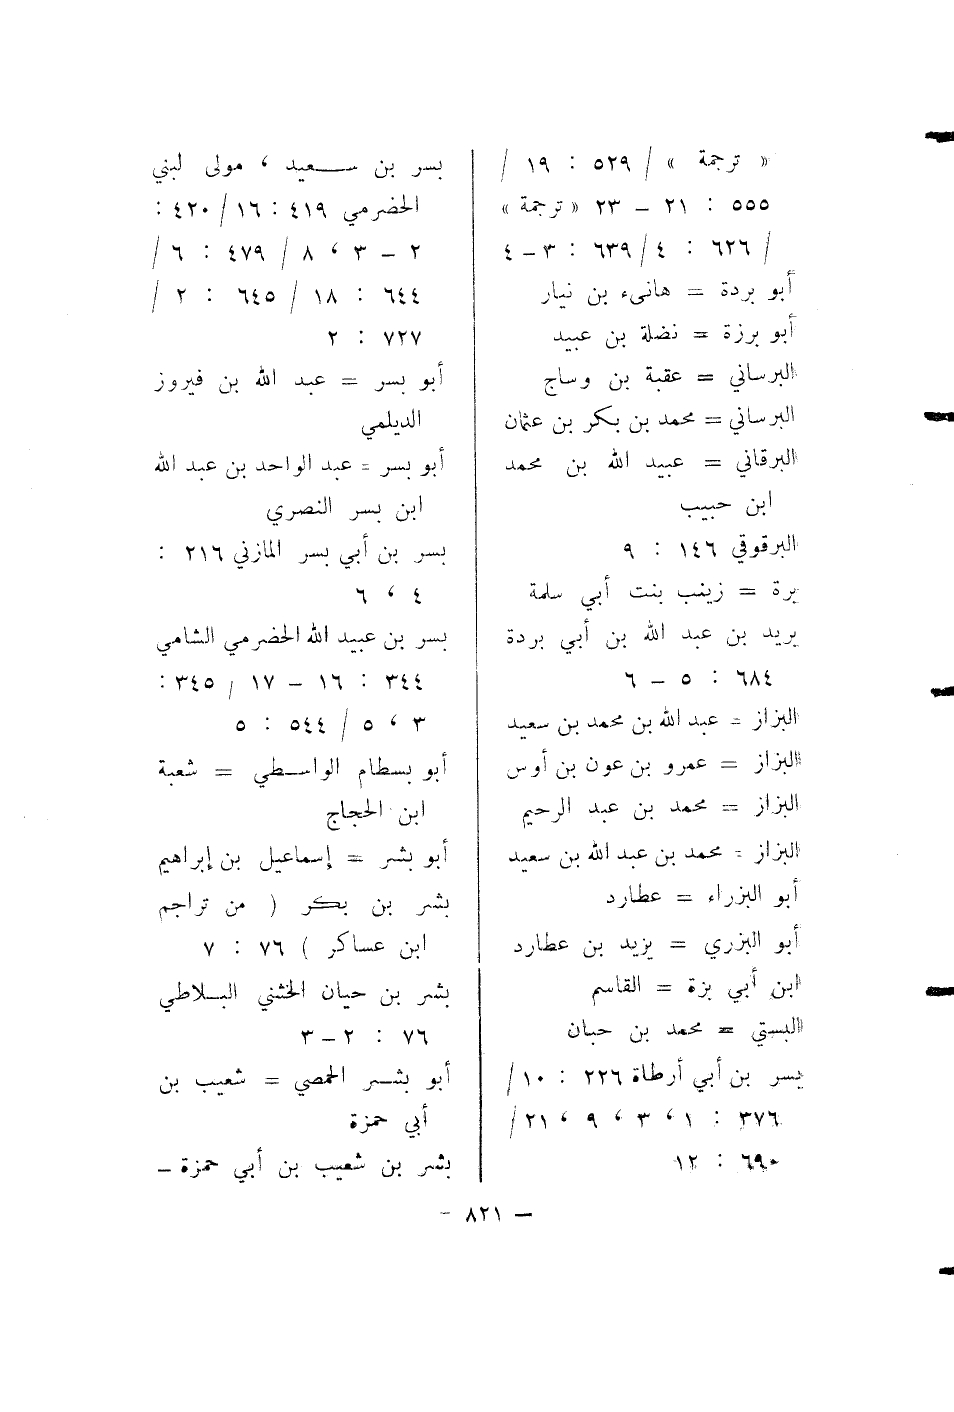 « ترجمة » / ٥٢٩ : ١٩ /
٥٥٥ : ٢١ – ٢٣ « ترجمة »
/ ٦٢٦ : ٤ / ٦٣٩ : ٣ – ٤
أبو بردة = هانىء بن نيار
أبو برزة = نضلة بن عبيد
البرساني = عقبة بن وساج
البرساني = محمد بن بكر بن عثمان
البرقاني = عبيد الله بن محمد
ابن حبيب
البرقوقي ١٤٦ : ٩
برة = زينب بنت أبي سلمة
بريد بن عبد الله بن أبي بردة
٦٨٤ : ٥ – ٦
البزاز = عبد الله بن محمد بن سعيد
البزاز = عمرو بن عون بن أوس
البزاز = محمد بن عبد الرحيم
البزاز = محمد بن عبد الله بن سعيد
أبو البزراء = عطارد
أبو البزري = يزيد بن عطارد
ابن أبي بزة = القاسم
البستي = محمد بن حبان
بسر بن أبي أرطاة ٢٢٦ : ١٠ /
٣٧٦ : ١ ، ٣ ، ٩ ، ٢١ /
٦٩٠ : ١٢
بسر بن سعيد ، مولى لبني
الحضرمي ٤١٩ : ١٦ / ٤٢٠ :
٢ – ٣ ، ٨ / ٤٧٩ : ٦ /
٦٤٤ : ١٨ / ٦٤٥ : ٢ /
٧٢٧ : ٢
أبو بسر = عبد الله بن فيروز
الديلمي
أبو بسر = عبد الواحد بن عبد الله
ابن بسر النصري
بسر بن أبي بسر المازني ٢١٦ :
٤ ، ٦
بسر بن عبيد الله الحضرمي الشامي
٣٤٤ : ١٦ – ١٧ / ٣٤٥ :
٣ ، ٥ / ٥٤٤ : ٥
أبو بسطام الواسطي = شعبة
ابن الحجاج
أبو بشر = إسماعيل بن إبراهيم
بشر بن بكر ( من تراجم
ابن عساكر ) ٧٦ : ٧
بشر بن حيان الخشني البلاطي
٧٦ : ٢ – ٣
أبو بشر الحمصي = شعيب بن
أبي حمزة
بشر بن شعيب بن أبي حمزة –
– ٨٢١ –